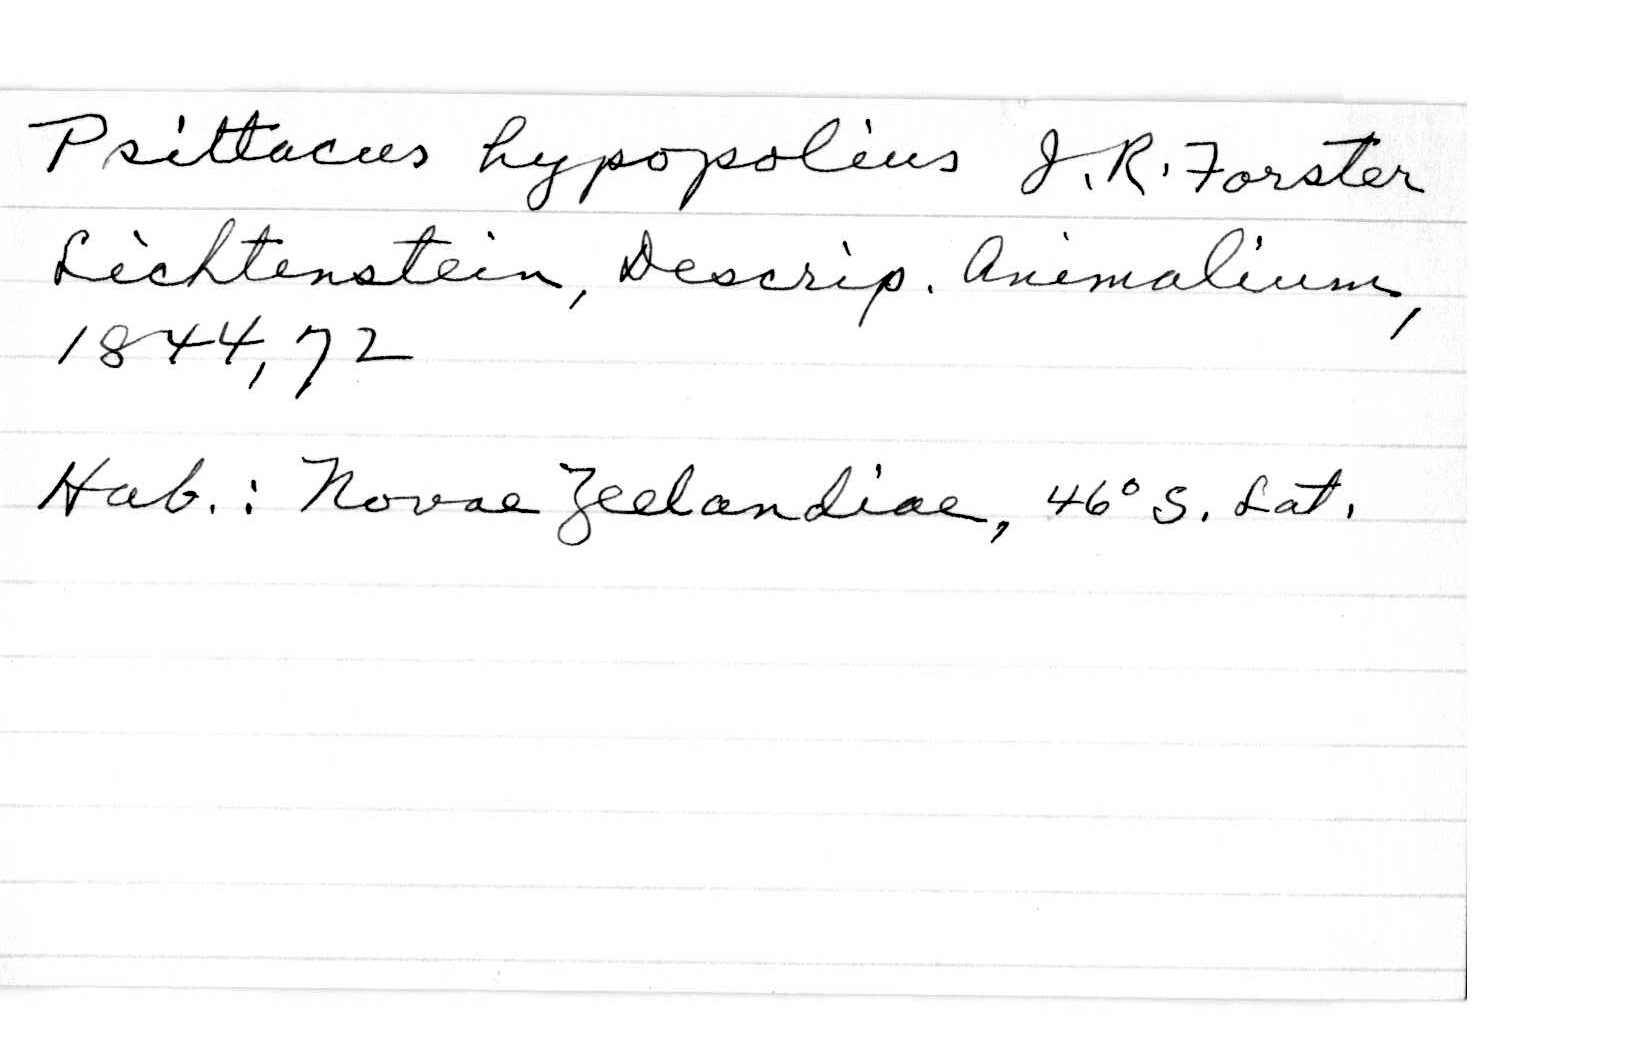 Psittacus hypopolius J. R. Forster
Lichtenstein, Descrip. Animalium,
1844, 72
Hab. : Novae Zeelandiae, 46° S. Lat.